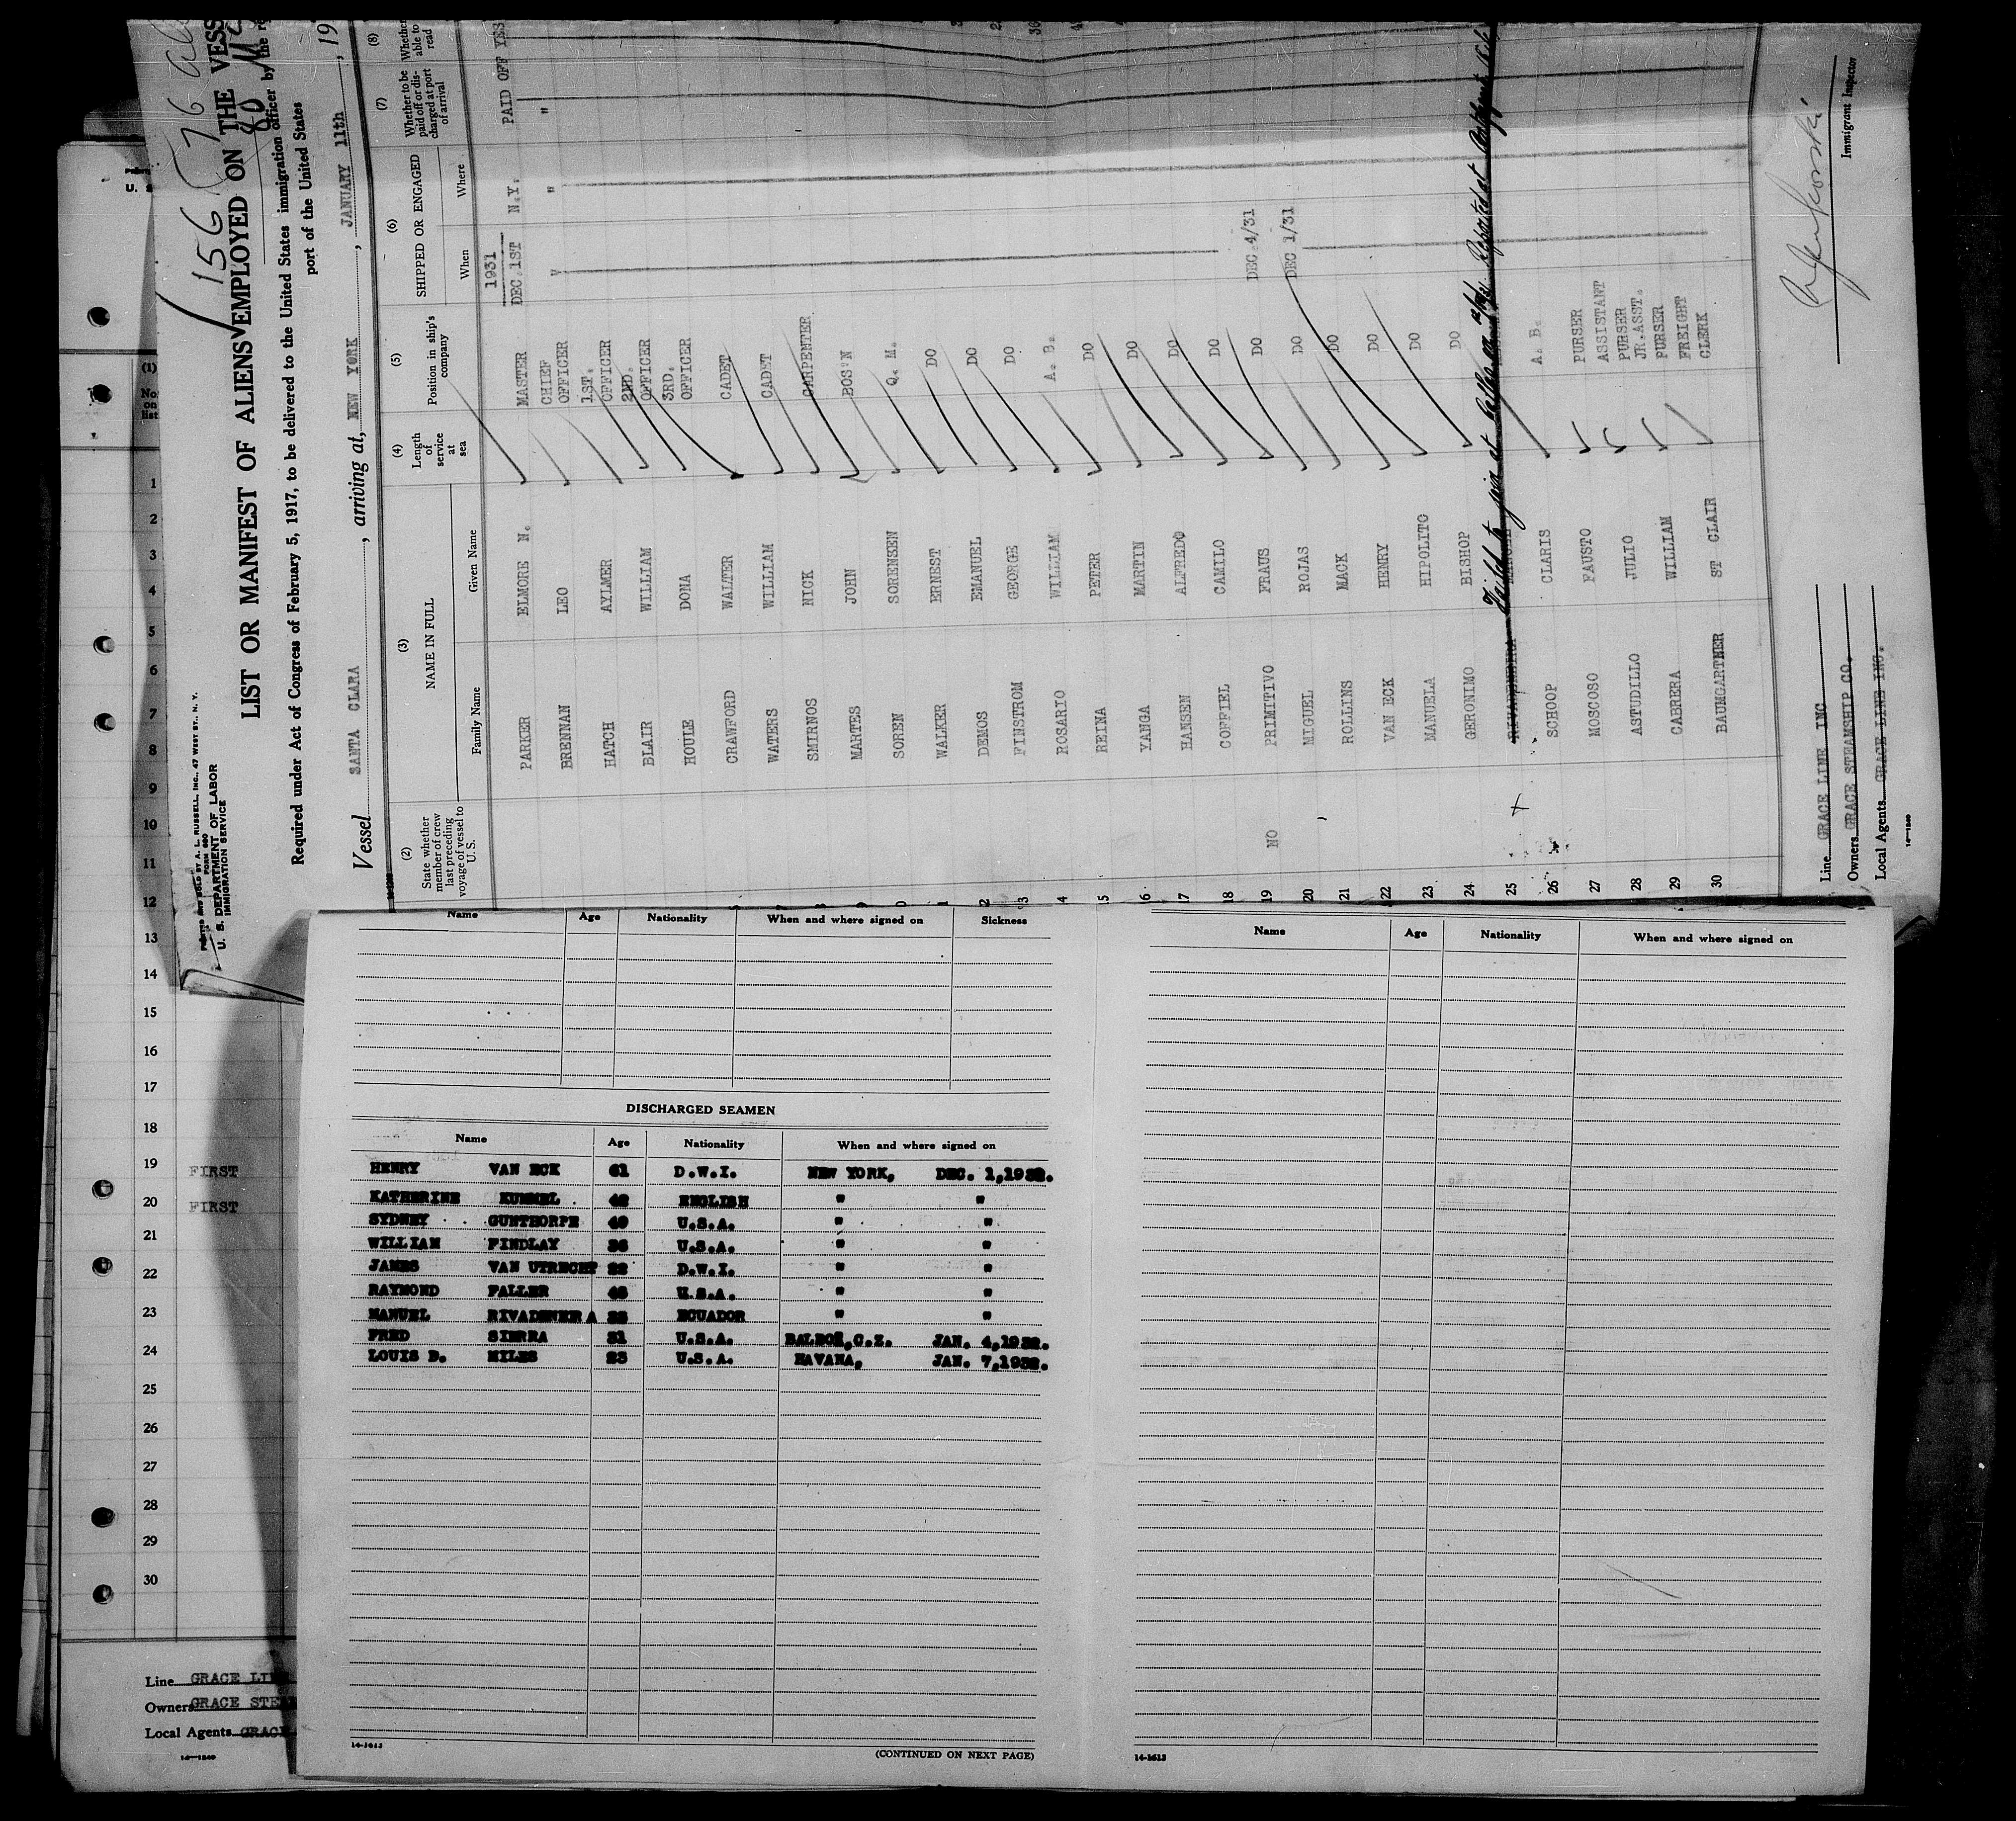 156 76
80
LIST OR MANIFEST OF ALIENS EMPLOYED ON THE VESS
Required under Act of Congress of February 5, 1917, to be delivered to the United States immigration officer by the re
port of the United States
PRINTED AND SOLD BY A. L. RUSSELL, INC., 47 WEST ST., N. Y.
FORM 680
U. S. DEPARTMENT OF LABOR
IMMIGRATION SERVICE
Vessel SANTA CLARA, arriving at, NEW YORK, JANUARY 11th, 19
(2) (3) (4) (5) (6) (7) (8)
State whether member of crew last preceding voyage of vessel to U. S.
NAME IN FULL
Family Name Given Name
Length of service at sea
Position in ship's company
SHIPPED OR ENGAGED
When Where
Whether to be paid off or discharged at port of arrival
Whether able to read
1931
PARKER ELMORE N. MASTER DEC.1ST N.Y. PAID OFF YES
BRENNAN LEO CHIEF OFFICER " " "
HATCH AYLMER 1ST. OFFICER
BLAIR WILLIAM 2ND. OFFICER
HOULE DONA 3RD. OFFICER
CRAWFORD WALTER CADET
WATERS WILLIAM CADET
SMIRNOS NICK CARPENTER
MARTES JOHN BOS'N
SOREN SORENSEN Q. M.
WALKER ERNEST DO
DEMOS EMANUEL DO
FINSTROM GEORGE DO
ROSARIO WILLIAM A. B.
REINA PETER DO
YANGA MARTIN DO
HANSEN ALFREDO DO
18 COFFIEL CAMILO DO
19 NO PRIMITIVO FRAUS DO DEC 4/31
20 MIGUEL ROJAS DO DEC 1/31
21 ROLLINS MACK DO
22 VAN ECK HENRY DO
23 MANUELA HIPOLITO DO
24 GERONIMO BISHOP DO
25 Failed to join at Balboa Reported at
26 SCHOOP CLARIS A. B.
27 MOSCOSO FAUSTO PURSER
28 ASTUDILLO JULIO ASSISTANT PURSER
29 CABRERA WILLIAM JR.ASST. PURSER
30 BAUMGARTNER ST CLAIR FREIGHT CLERK
Line GRACE LINE INC
Owners GRACE STEAMSHIP CO.
Local Agents GRACE LINE INC.
14-1240
Immigrant Inspector
U. S
(1)
No. on list
1
2
3
4
5
6
7
8
9
10
11
12
13
14
15
16
17
18
19 FIRST
20 FIRST
21
22
23
24
25
26
27
28
29
30
Line GRACE LI
Owners GRACE STE
Local Agents GRAC
14-1240
Name Age Nationality When and where signed on Sickness
DISCHARGED SEAMEN
Name Age Nationality When and where signed on
HENRY VAN ECK 61 D.W.I. NEW YORK, DEC. 1,1932.
KATHERINE KUMMEL 42 ENGLISH " "
SYDNEY GUNTHORPE 40 U.S.A. " "
WILLIAM FINDLAY 36 U.S.A. " "
JAMES VAN UTRECHT 22 D.W.I. " "
RAYMOND FALLER 48 U.S.A. " "
MANUEL RIVADENEIRA ECUADOR " "
FRED SIERRA 31 U.S.A. BALBOA,C.Z. JAN. 4,1932.
LOUIS D. MILES 23 U.S.A. HAVANA, JAN. 7,1932.
14-1613
(CONTINUED ON NEXT PAGE)
Name Age Nationality When and where signed on
14-1613